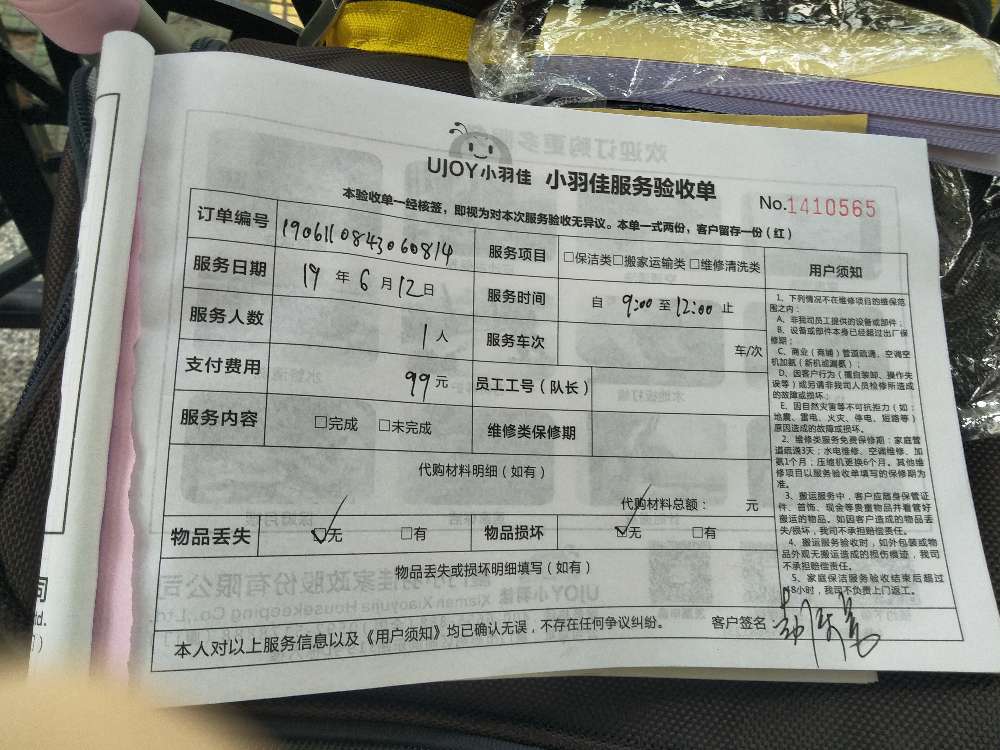 UJOY小羽佳 小羽佳服务验收单
No.1410565
本验收单一经核签，即视为对本次服务验收无异议。本单一式两份，客户留存一份（红）
订单编号 1906110843060814 服务项目 □保洁类□搬家运输类□维修清洗类
服务日期 19 年 6 月 12 日 服务时间 自 9:00 至 12:00 止
服务人数 1 人 服务车次 车/次
支付费用 99 元 员工工号（队长）
服务内容 □完成 □未完成 维修类保修期
代购材料明细（如有）
代购材料总额： 元
物品丢失 ☑无 □有 物品损坏 ☑无 □有
物品丢失或损坏明细填写（如有）
本人对以上服务信息以及《用户须知》均已确认无误，不存在任何争议纠纷。 客户签名：
用户须知
1、下列情况不在维修项目的维保范
围之内：
A、非我司员工提供的设备或部件；
B、设备或部件本身已经超过出厂保
修期；
C、商业（商铺）管道疏通、空调空
机加氨（新机或漏氨）；
D、因客户行为（擅自装卸、操作失
误等）或另请非我司人员检修所造成
的故障或损坏；
E、因自然灾害等不可抗拒力（如：
地震、雷电、火灾、停电、短路等）
原因造成的故障或损坏。
2、维修类服务免费保修期：家庭管
道疏通3天；水电维修、空调维修、加
氨1个月；压缩机更换6个月。其他维
修项目以服务验收单填写的保修期为
准。
3、搬运服务中，客户应随身保管证
件、首饰、现金等贵重物品并看管好
搬运的物品。如因客户造成的物品丢
失/损坏，我司不承担赔偿责任。
4、搬运服务验收时，如外包装或物
品外观无搬运造成的损伤痕迹，我司
不承担赔偿责任。
5、家庭保洁服务验收结束后超过
48小时，我司不负责上门返工。
司
td.